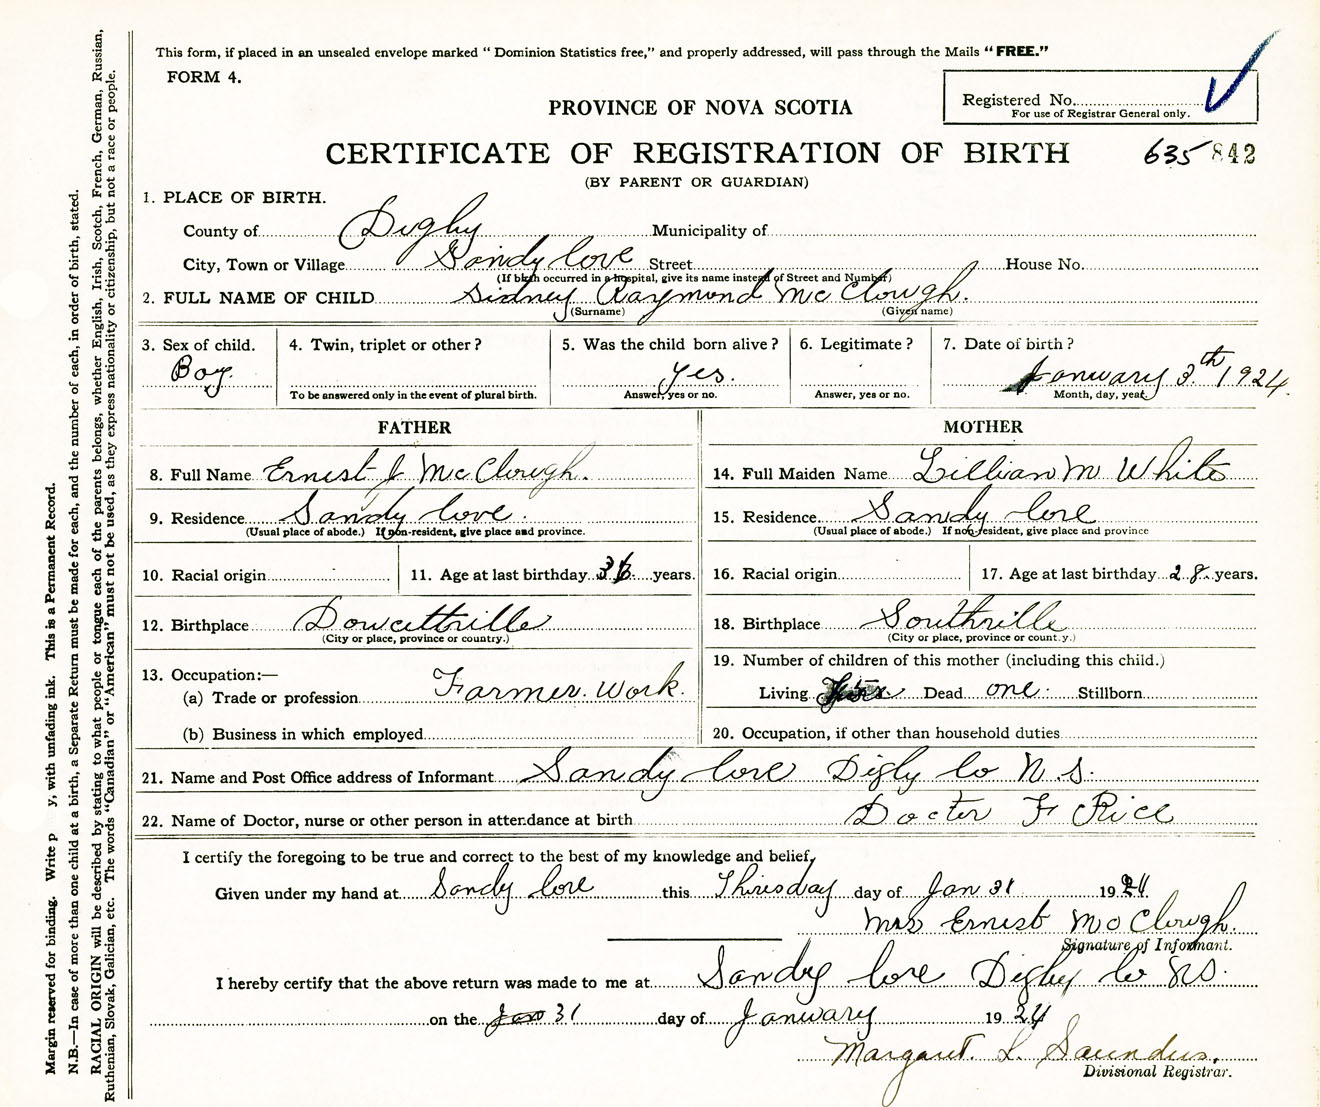 This form, if placed in an unsealed envelope marked “ Dominion Statistics free,” and properly addressed, will pass through the Mails “FREE.”
FORM 4.
Registered No.
For use of Registrar General only.
PROVINCE OF NOVA SCOTIA
CERTIFICATE OF REGISTRATION OF BIRTH
635 842
(BY PARENT OR GUARDIAN)
1. PLACE OF BIRTH.
County of Digby Municipality of
City, Town or Village Sandy Cove Street House No.
(If birth occurred in a hospital, give its name instead of Street and Number)
2. FULL NAME OF CHILD Sidney Raymond McClough.
(Surname) (Given name)
3. Sex of child. 4. Twin, triplet or other? 5. Was the child born alive? 6. Legitimate? 7. Date of birth?
Boy. yes. January 3.th 1924.
To be answered only in the event of plural birth. Answer, yes or no. Answer, yes or no. Month, day, year.
FATHER MOTHER
8. Full Name Ernest J McClough. 14. Full Maiden Name Lillian M White
9. Residence Sandy Cove. 15. Residence Sandy Cove
(Usual place of abode.) If non-resident, give place and province. (Usual place of abode.) If non-resident, give place and province
10. Racial origin 11. Age at last birthday years. 16. Racial origin 17. Age at last birthday 28 years.
12. Birthplace Doucettville 18. Birthplace Southville
(City or place, province or country.) (City or place, province or country.)
13. Occupation:— 19. Number of children of this mother (including this child.)
(a) Trade or profession Farmer. Work. Living Dead one. Stillborn
(b) Business in which employed 20. Occupation, if other than household duties
21. Name and Post Office address of Informant Sandy Cove Digby Co N.S.
22. Name of Doctor, nurse or other person in attendance at birth Doctor F Rice
I certify the foregoing to be true and correct to the best of my knowledge and belief,
Given under my hand at Sandy Cove this Thirsday day of Jan 31 1924.
Mrs Ernest McClough.
Signature of Informant.
I hereby certify that the above return was made to me at Sandy Cove Digby Co NS.
on the Jan 31 day of January 1924
Margaret. L. Saunders.
Divisional Registrar.
Margin reserved for binding. Write p y, with unfading ink. This is a Permanent Record.
N.B.—In case of more than one child at a birth, a Separate Return must be made for each, and the number of each, in order of birth, stated.
RACIAL ORIGIN will be described by stating to what people or tongue each of the parents belongs, whether English, Irish, Scotch, French, German, Russian,
Ruthenian, Slovak, Galician, etc. The words “Canadian” or “American” must not be used, as they express nationality or citizenship, but not a race or people.